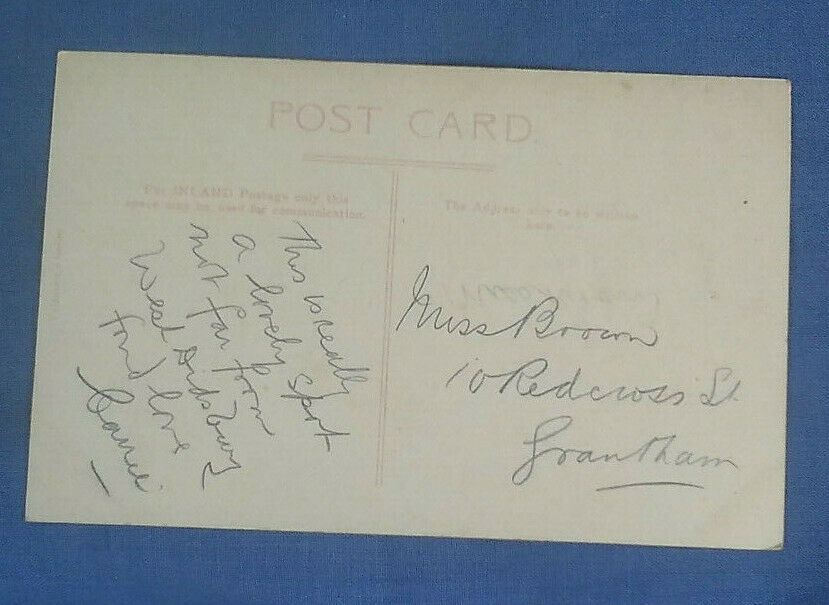 POST CARD.
For INLAND Postage only this
space may be used for communication.
The Address only to be written
here
This is really
a lovely spot
not far from
West Didsbury
fond love
Miss Brown
10 Redcross St.
Grantham